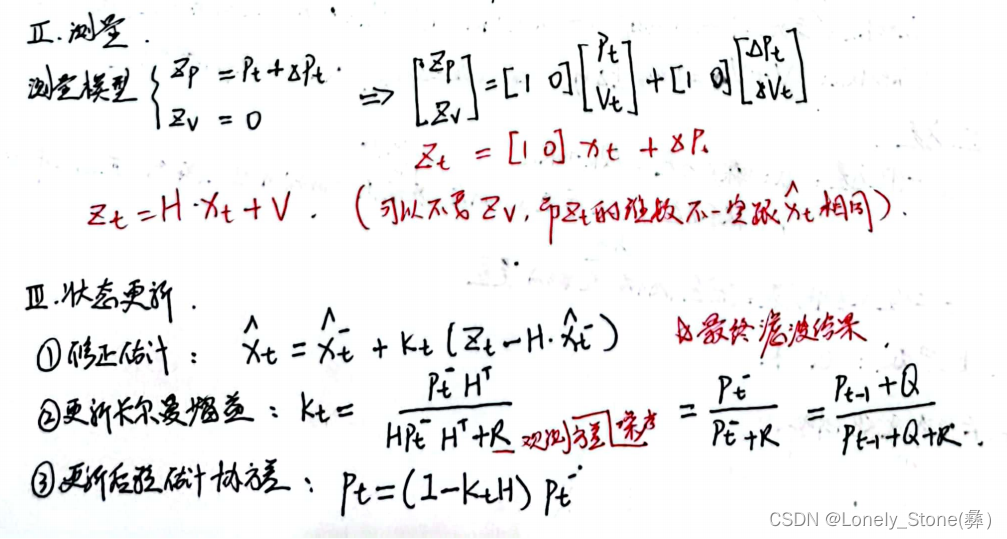 Ⅱ.测量.
测量模型 { Zp = Pt + ΔPt. Zv = 0 ⇒ [Zp Zv] = [1 0] [Pt Vt] + [1 0] [ΔPt ΔVt]
Zt = [1 0] xt + ΔPt
Zt = H·xt + V. (可以不写Zv, 即Zt的维数不一定跟x̂t相同).
Ⅲ.状态更新.
①修正估计: x̂t = x̂t⁻ + Kt (Zt - H·x̂t⁻) 最终滤波结果.
②更新卡尔曼增益: Kt = Pt⁻Hᵀ / (HPt⁻Hᵀ + R) 观测方差 噪声 = Pt⁻ / (Pt⁻ + R) = (Pt-1 + Q) / (Pt-1 + Q + R).
③更新后验估计协方差: Pt = (I - KtH) Pt⁻
CSDN @Lonely_Stone(彝)